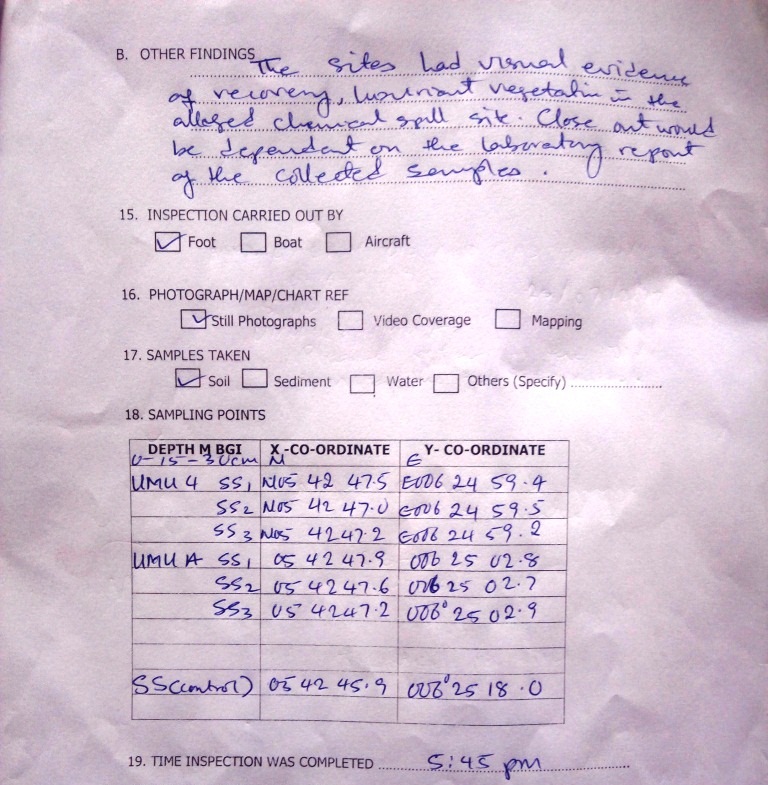 B. OTHER FINDINGS The sites had visual evidence
of recovery, luxuriant vegetation in the
alleged chemical spill site. Close out would
be dependent on the laboratory report
of the collected samples.
15. INSPECTION CARRIED OUT BY
Foot Boat Aircraft
16. PHOTOGRAPH/MAP/CHART REF
Still Photographs Video Coverage Mapping
17. SAMPLES TAKEN
Soil Sediment Water Others (Specify)
18. SAMPLING POINTS
DEPTH M BGI X -CO-ORDINATE Y- CO-ORDINATE
0-15-30cm N E
UMU 4 SS1 N05 42 47.5 E006 24 59.4
SS2 N05 42 47.0 E006 24 59.5
SS3 N05 42 47.2 E006 24 59.2
UMU A SS1 05 42 47.9 006 25 02.8
SS2 05 42 47.6 006 25 02.7
SS3 05 42 47.2 006° 25 02.9
SS(control) 05 42 45.9 006° 25 18.0
19. TIME INSPECTION WAS COMPLETED 5:45 pm